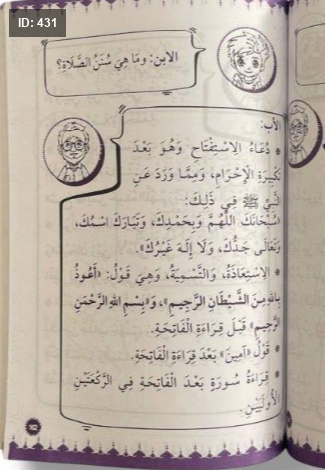 ID: 431
الابن: ومَا هِيَ سُنَنُ الصَّلَاةِ؟
الأب:
* دُعَاءُ الِاسْتِفْتَاحِ وَهُوَ بَعْدَ
تَكْبِيرَةِ الْإِحْرَامِ، وَمِمَّا وَرَدَ عَنِ
النَّبِيِّ ﷺ فِي ذَلِكَ:
«سُبْحَانَكَ اللَّهُمَّ وَبِحَمْدِكَ، وَتَبَارَكَ اسْمُكَ،
وَتَعَالَى جَدُّكَ، وَلَا إِلَهَ غَيْرُكَ».
* الِاسْتِعَاذَةُ، وَالتَّسْمِيَةُ، وَهِيَ قَوْلُ: «أَعُوذُ
بِاللهِ مِنَ الشَّيْطَانِ الرَّجِيمِ»، وَ«بِسْمِ اللهِ الرَّحْمَنِ
الرَّحِيمِ» قَبْلَ قِرَاءَةِ الْفَاتِحَةِ.
* قَوْلُ «آمِينَ» بَعْدَ قِرَاءَةِ الْفَاتِحَةِ.
* قِرَاءَةُ سُورَةٍ بَعْدَ الْفَاتِحَةِ فِي الرَّكْعَتَيْنِ
الْأُولَيَيْنِ.